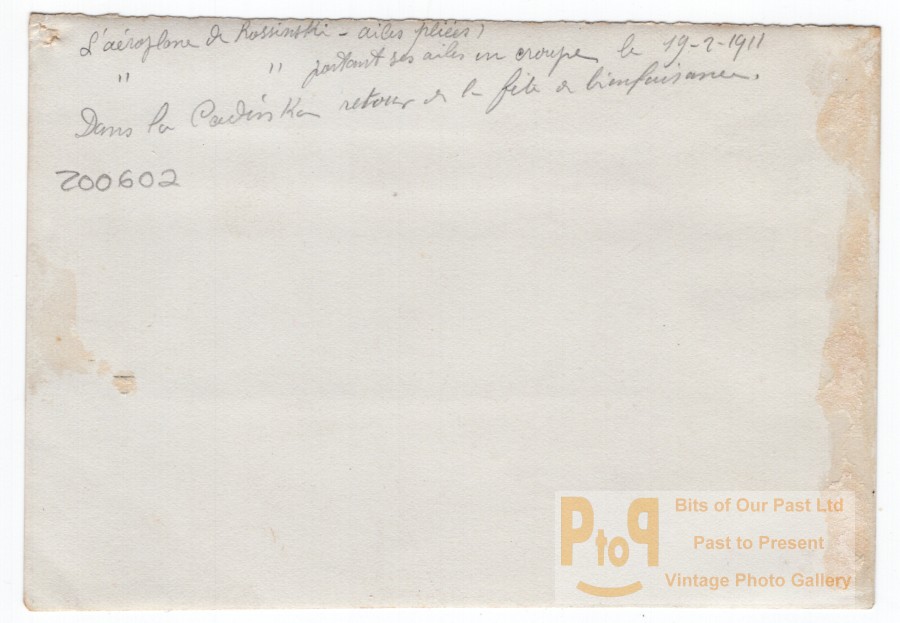 L'aéroplane de Rossinski - ailes pliées!
" " portant ses ailes en croupe le 19-2-1911
Dans la Cadinska retour de la fête de bienfaisance.
200602
PtoP
Bits of Our Past Ltd
Past to Present
Vintage Photo Gallery